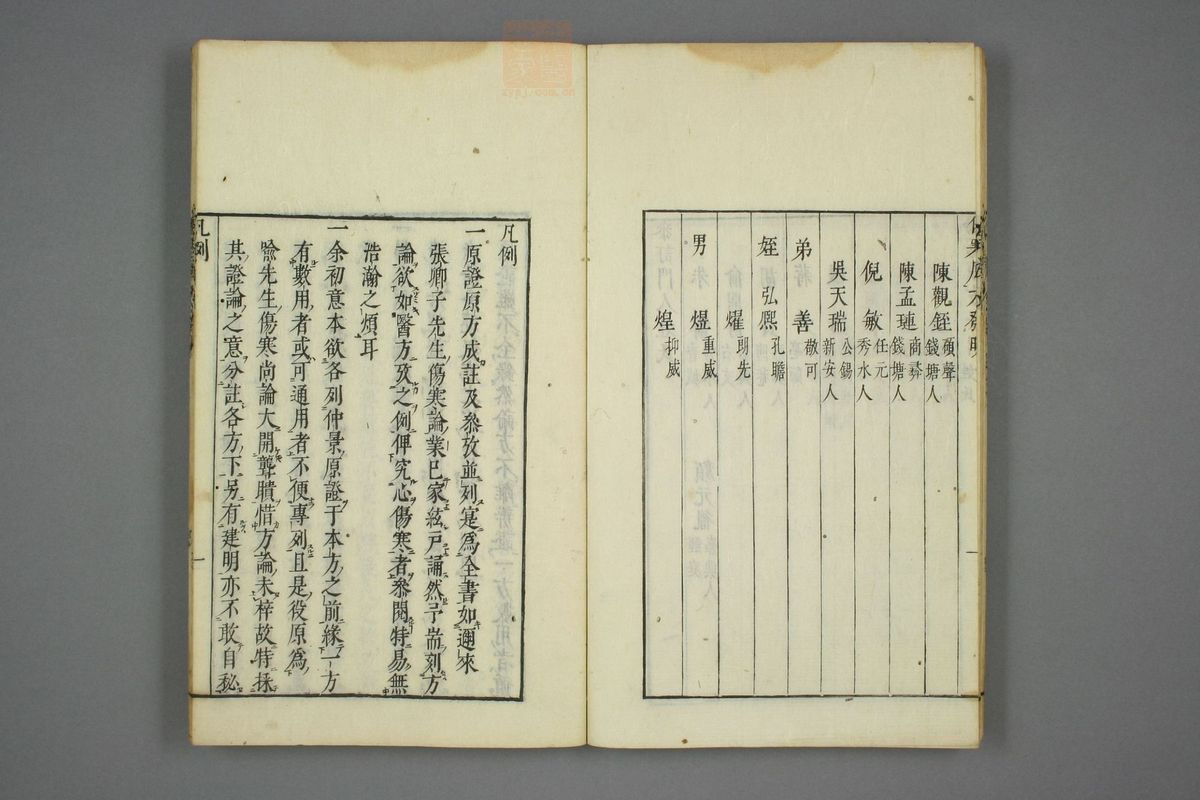 陳觀銍碩聲錢塘人
陳孟璉商彝錢塘人
倪敏任元秀水人
吳天瑞公錫新安人
弟蔣善敬可
姪弘熈孔瞻
燿朗先
男朱煜重威
煌抑威
凡例
一原證原方成註及叅攷並列寔爲全書如邇來
張卿子先生傷寒論業已家絃戸誦然予耑刻方
論欲如醫方攷之例俾究心傷寒者叅閱特易無
浩瀚之煩耳
一余初意本欲各列仲景原證于本方之前緣一方
有數用者或可通用者不便專列且是役原爲
喻先生傷寒尚論大開聾瞶惜方論未梓故特採
其證論之意分註各方下另有建明亦不敢自秘
凡例
一
zyyj.com.cn